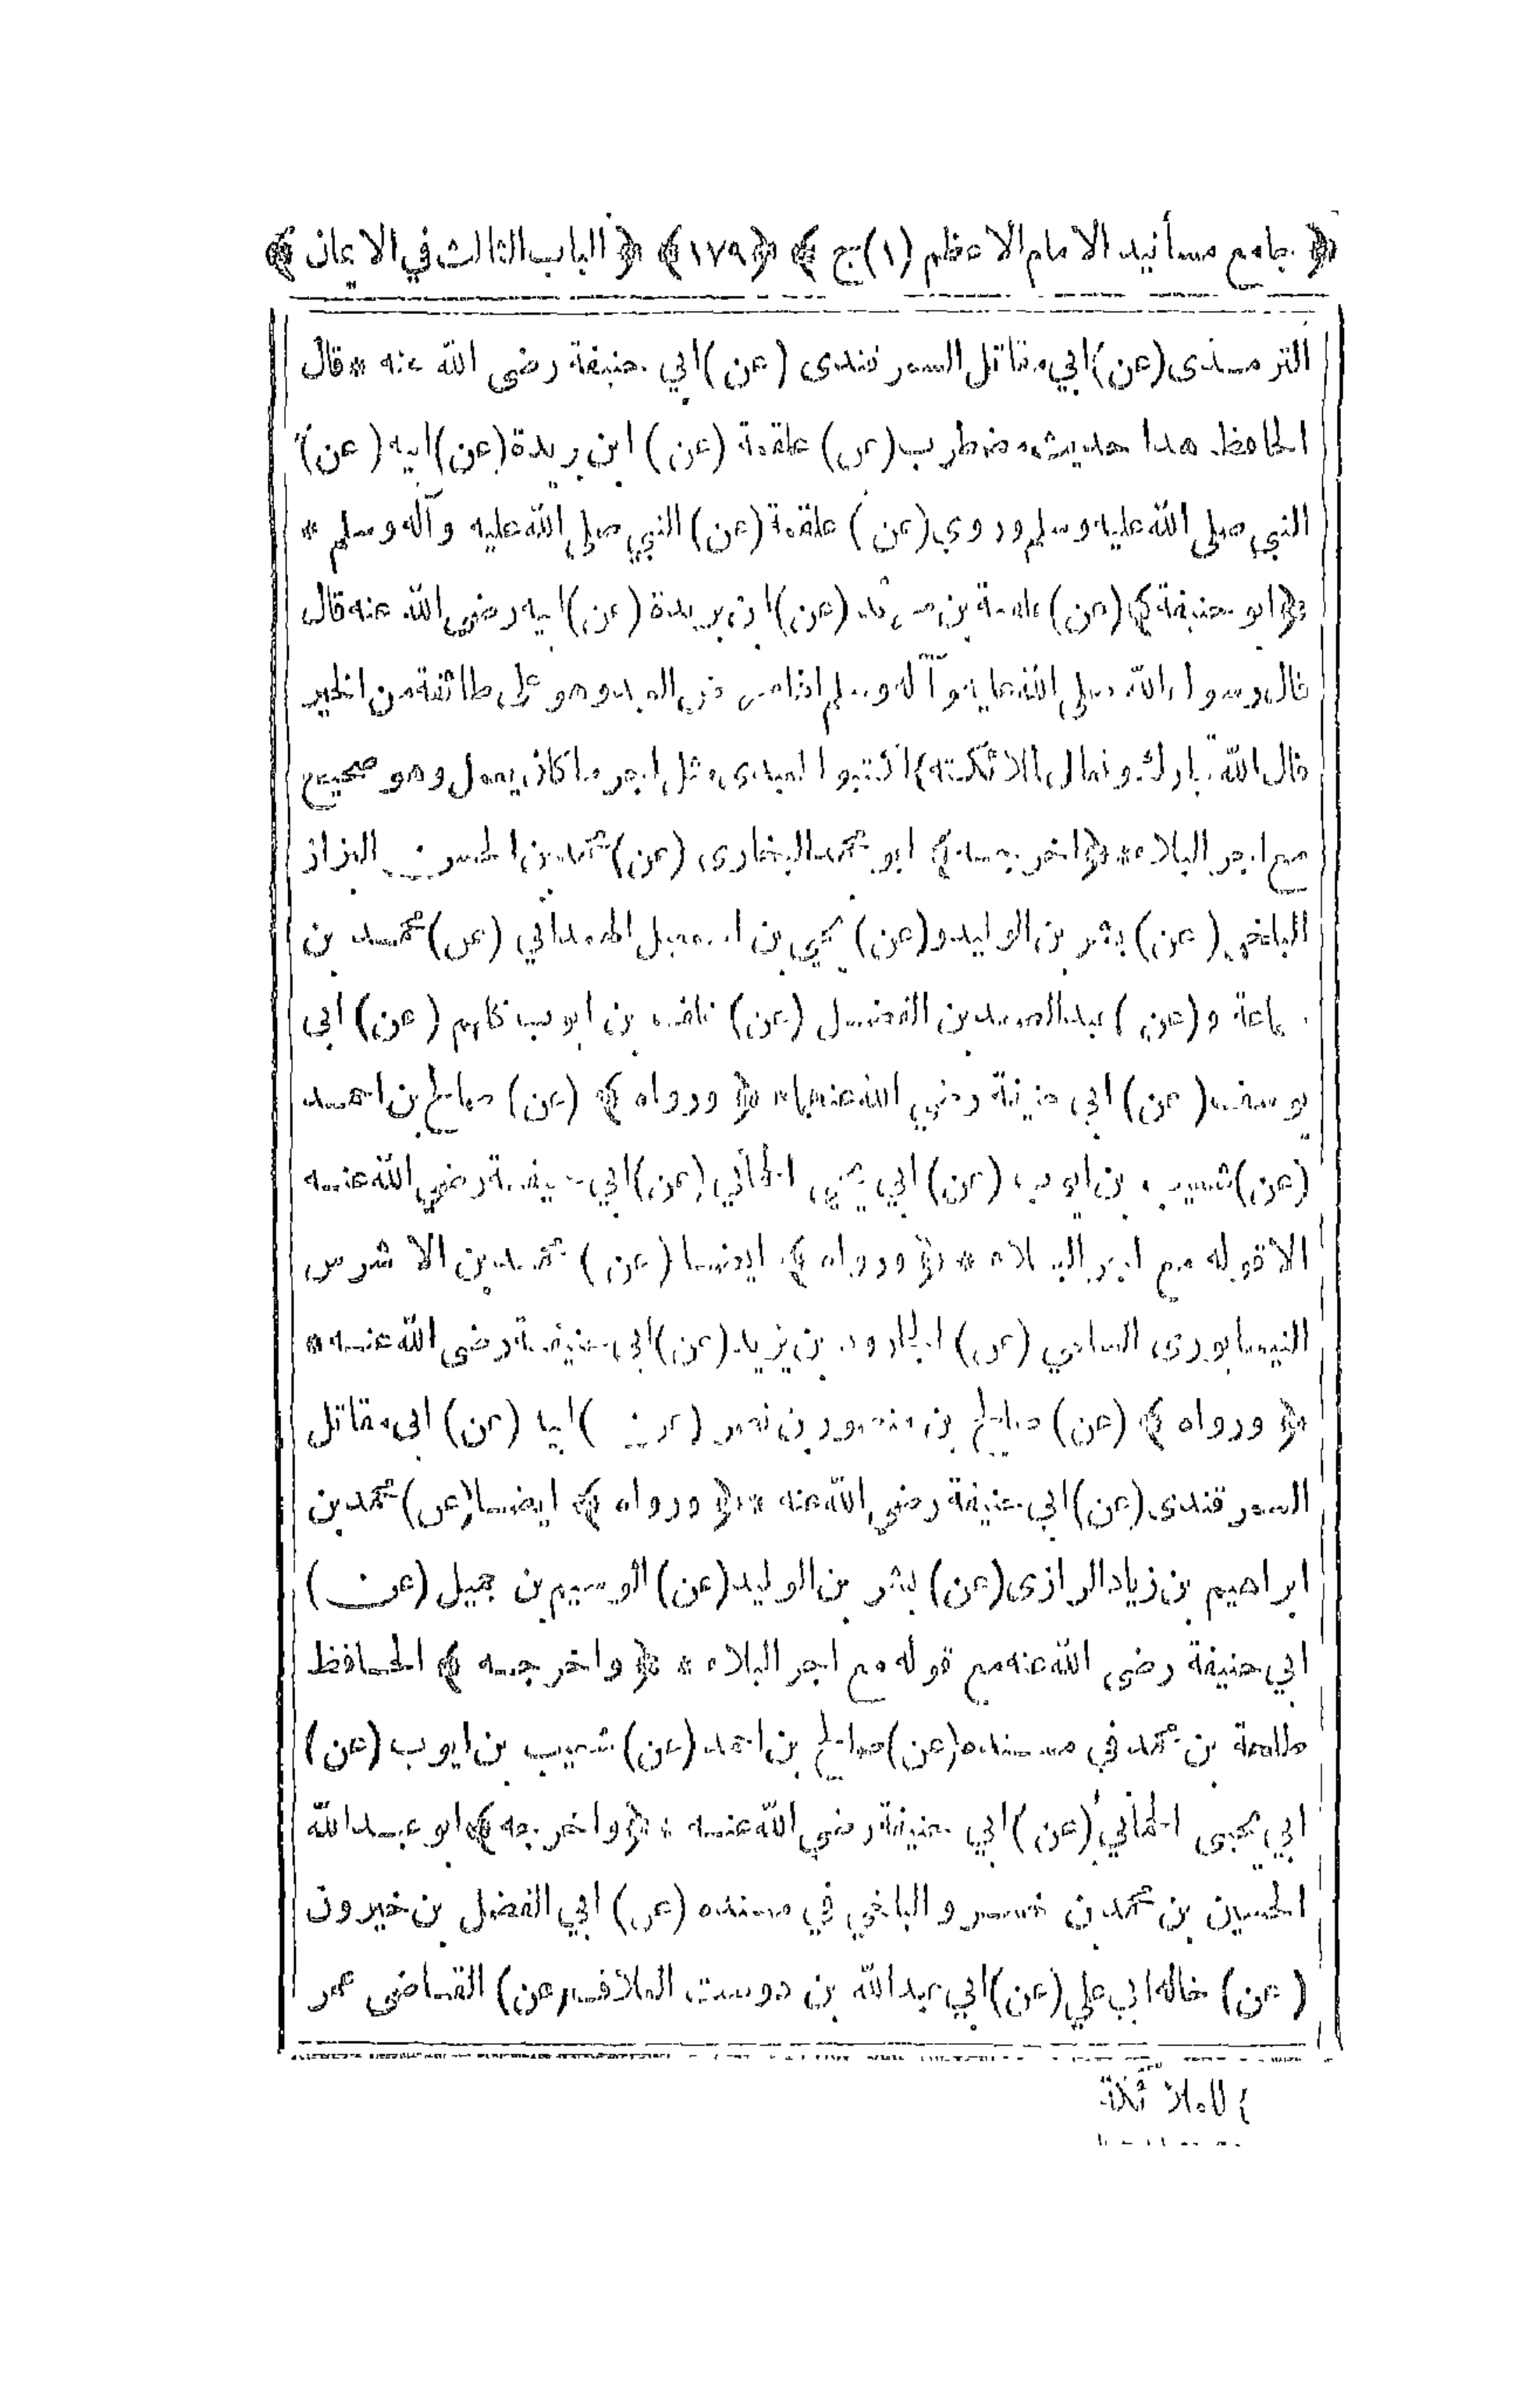 ﴿ جامع مسانيد الامام الاعظم (١) ج ﴾ ﴿١٧٩﴾ ﴿ الباب الثالث في الايمان ﴾
الترمذى (عن) ابي مقاتل السمر قندى (عن) ابي حنيفة رضى الله عنه * قال
الحافظ هذا حديث مضطرب (عن) علقمة (عن) ابن بريدة (عن) ابيه (عن)
النبي صلى الله عليه وسلم وروي (عن) علقمة (عن) النبي صلى الله عليه وآله وسلم *
﴿ ابو حنيفة ﴾ (عن) علقمة بن مرثد (عن) ابن بريدة (عن) ابيه رضى الله عنه قال
قال رسول الله صلى الله عليه وآله وسلم اذا مرض العبد وهو على طائفة من الخير
قال الله تبارك وتعالى لملائكته) اكتبوا لعبدى مثل اجر ما كان يعمل وهو صحيح
مع اجر البلاء * ﴿ اخرجه ﴾ ابو محمد البخارى (عن) محمد بن الحسن البزاز
البلخي (عن) بشر بن الوليد و (عن) يحيى بن اسمعيل الهمداني (عن) محمد بن
سماعة و (عن) عبد الصمد بن الفضل (عن) خلف بن ايوب كلهم (عن) ابى
يوسف (عن) ابى حنيفة رضي الله عنهما * ﴿ ورواه ﴾ (عن) صالح بن احمد
(عن) شعيب بن ايوب (عن) ابي يحيى الحماني (عن) ابي حنيفة رضي الله عنه
الا قوله مع اجر البلاء * ﴿ ورواه ﴾ ايضا (عن) محمد بن الاشرس
النيسابورى السلمي (عن) الجارود بن يزيد (عن) ابى حنيفة رضى الله عنه *
﴿ ورواه ﴾ (عن) صالح بن منصور بن نصر (عن) ابيه (عن) ابى مقاتل
السمر قندى (عن) ابي حنيفة رضي الله عنه * ﴿ ورواه ﴾ ايضا (عن) محمد بن
ابراهيم بن زياد الرازى (عن) بشر بن الوليد (عن) الوسيم بن جميل (عن)
ابي حنيفة رضى الله عنه مع قوله مع اجر البلاء * ﴿ واخرجه ﴾ الحافظ
طلحة بن محمد في مسنده (عن) صالح بن احمد (عن) شعيب بن ايوب (عن)
ابي يحيى الحماني (عن) ابي حنيفة رضي الله عنه * ﴿ واخرجه ﴾ ابو عبد الله
الحسين بن محمد بن خسرو البلخي في مسنده (عن) ابي الفضل بن خيرون
(عن) خاله ابي علي (عن) ابي عبد الله بن دوست العلاف (عن) القاضى عمر
) للملائكة